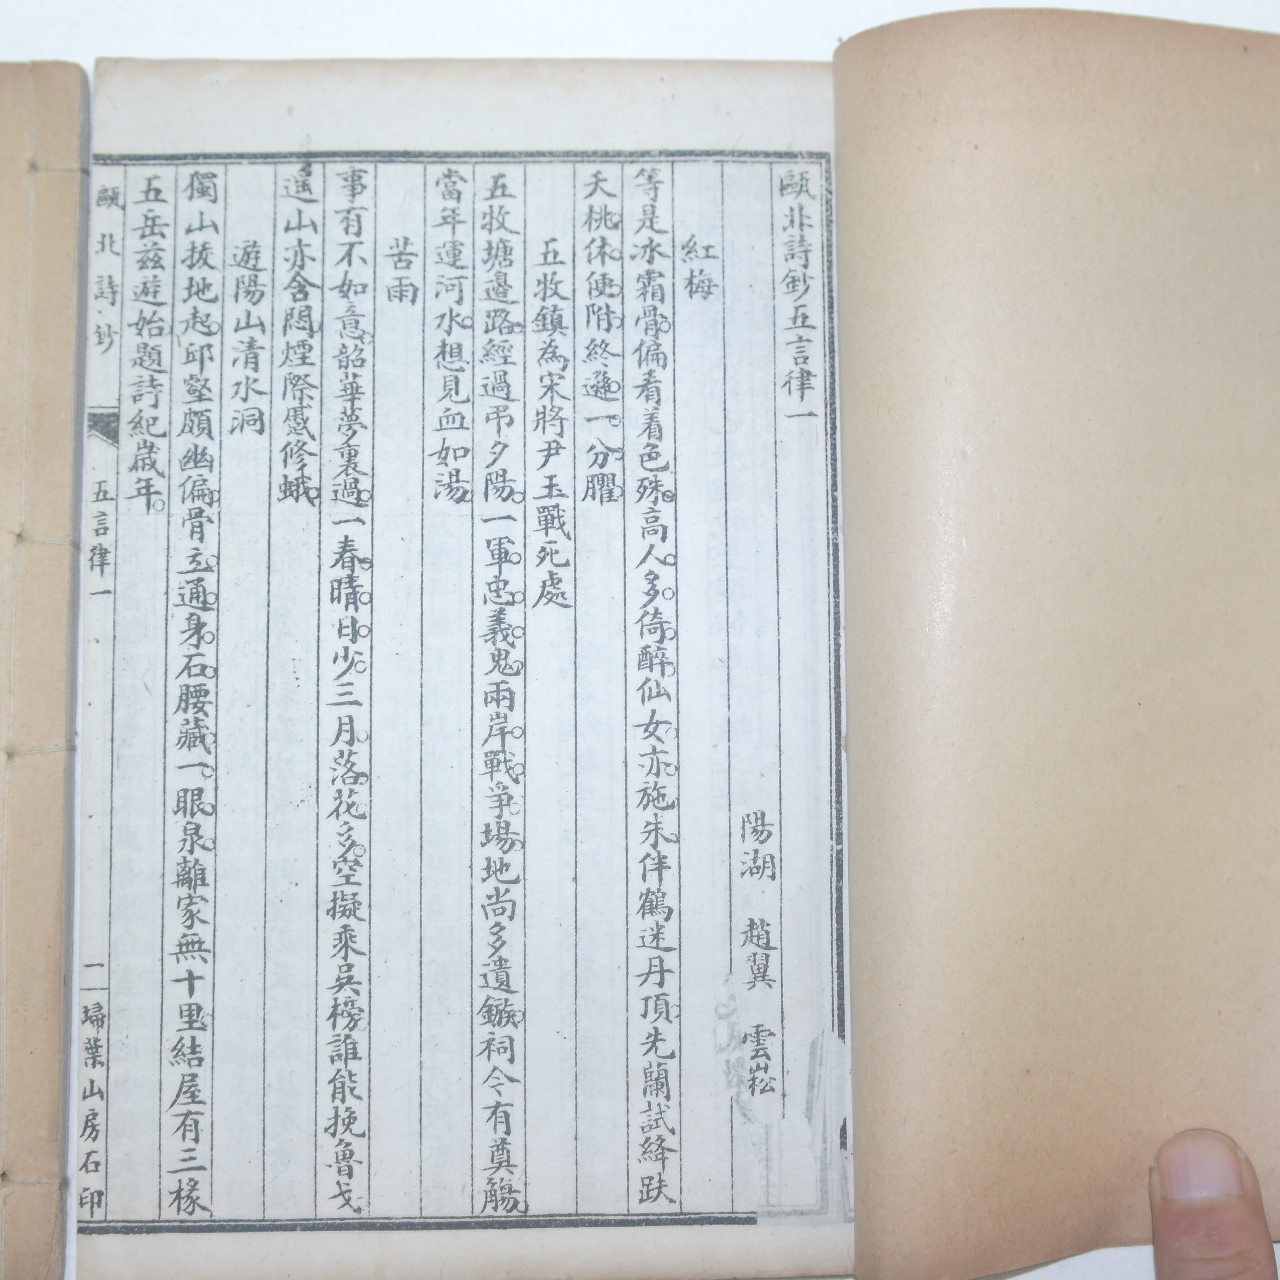 甌北詩鈔五言律一
陽湖 趙翼 雲崧
紅梅
等是冰霜骨偏看着色殊高人多倚醉仙女亦施朱伴鶴迷丹頂先蘭試絳趺
夭桃休便附終遜一分臞
五牧鎮為宋將尹玉戰死處
五牧塘邊路經過弔夕陽一軍忠義鬼兩岸戰爭場地尚多遺鏃祠今有奠觴
當年運河水想見血如湯
苦雨
事有不如意韶華夢裏過一春晴日少三月落花多空擬乘吳榜誰能挽魯戈
遥山亦含悶煙際蹙修蛾
遊陽山清水洞
獨山拔地起邱壑頗幽偏骨立通身石腰藏一眼泉離家無十里結屋有三椽
五岳兹遊始題詩紀歲年
甌北詩鈔 五言律一 二 埽葉山房石印